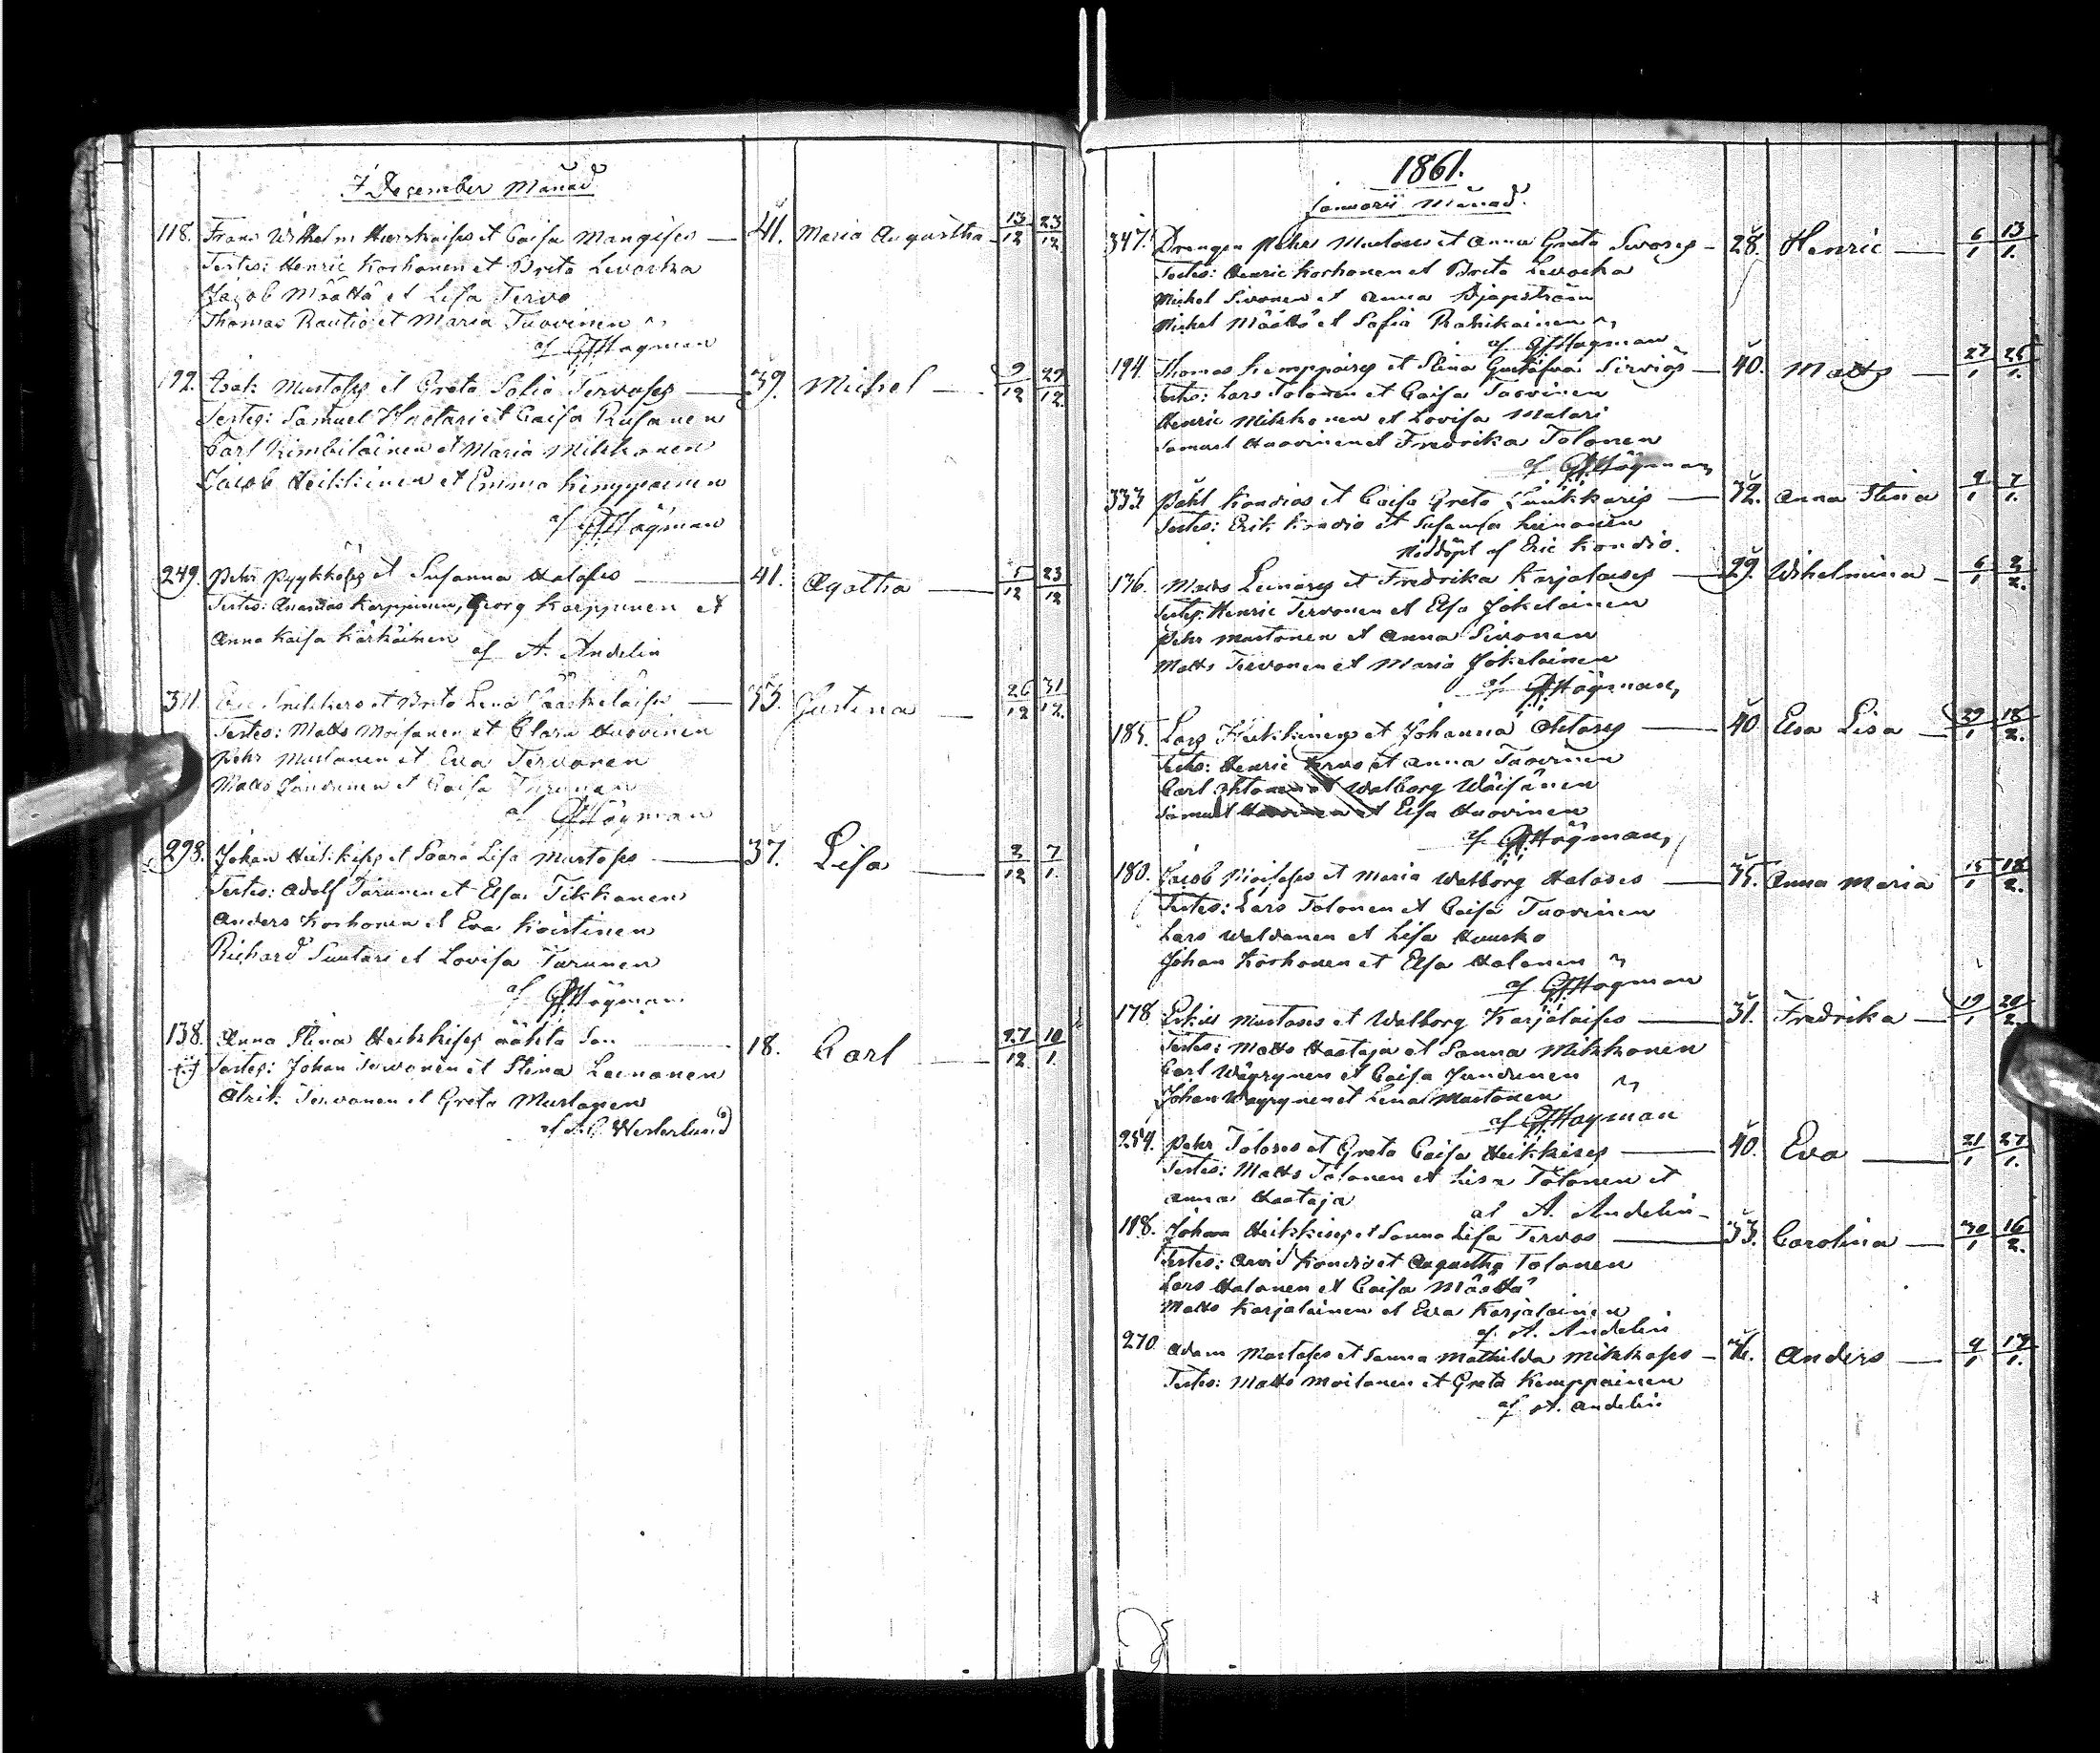 I December Månad
118. Frans Wilhelm et Caisa — 41. Maria Augustha 13/12 23/12
Testes: Henric Korhonen et Brita
Jacob Määttä et Lisa Tervo
Thomas Rautio et Maria Tuovinen
af GHögman
192. Isak Mustoses et Greta Sofia Tervoses — 39. Michel — 9/12 29/12
Testes: Samuel et Caisa Rusanen
Carl et Maria Mikkonen
Jacob Heikkinen et Emma Kemppainen
af GHögman
249. Pehr et Susanna Haloses — 41. Agatha — 5/12 23/12
Testes: Karppinen, Georg Karppinen et
Anna Kaisa Kärkäinen af A. Andelin
311. Eric et Brita Lena — 33. Justina — 26/12 31/12
Testes: Matts Moisanen et Clara Huovinen
Pehr Mustonen et Eva Tervonen
Matts et Caisa Turunen
af GHögman
298. Johan et Saara Lisa Mustoses — 37. Lisa — 2/12 7/1
Testes: Adolf Turunen et Elsa Tikkanen
Anders Korhonen et Eva Koistinen
Richard Suutari et Lovisa Turunen
af GHögman
138. Anna Stina Heikkises oäkta Son — 18. Carl — 27/12 10/1
Testes: Johan Tervonen et Stina Leinonen
Tervonen et Greta Mustonen
af A.G. Westerlund
1861.
Januarii Månad.
347. Drengen Pehr Mustoses et Anna Greta Sivoses — 28. Henric — 6/1 13/1
Testes: Henric Korhonen et Brita
Michel Sivonen et Anna
Michel Määttä et Sofia
af GHögman
194. Thomas Kemppaises et Stina Gustafva Sirviös — 40. Matts — 23/1 25/1
Testes: Lars Tolonen et Caisa Tuovinen
Henric Mikkonen et Lovisa
Samuel Huovinen et Fredrika Tolonen
af GHögman
333. Påhl Kondios et Caisa Greta — 32. Anna Stina 4/1 7/1
Testes: Erik Kondio et Susanna Leinonen
Nöddöpt af Eric Kondio.
136. Matts Leinoses et Fredrika Karjalaises — 29. Wilhelmina — 6/1 2/2
Testes: Henric Tervonen et Elsa Jokelainen
Pehr Mustonen et Anna Sivonen
Matts Tervonen et Maria Jokelainen
af GHögman
185. Lars et Johanna — 40 Eva Lisa — 29/1 18/2
Testes: Henric Tervo et Anna Tuovinen
Carl et Walborg Wäisänen
Samuel et Elsa Huovinen
af GHögman
180. Jacob et Maria Walborg Haloses — 35. Anna Maria 15/1 18/2
Testes: Lars Tolonen et Caisa Tuovinen
Lars et Lisa
Johan Korhonen et Elsa Halonen
af GHögman
178 Mustoses et Walborg Karjalaises — 31. Fredrika — 19/1 20/2
Testes: Matts Haataja et Sanna Mikkonen
Carl Wäyrynen et Caisa Juntunen
Johan Wäyrynen et Lena Mustonen
af GHögman
254. Pehr Toloses et Greta Caisa Heikkises — 40. Eva — 21/1 27/1
Testes: Matts Tolonen et Lisa Tolonen et
Anna Haataja af A. Andelin
118. Johan Heikkises et Sanna Lisa Tervos — 33. Carolina — 30/1 16/2
Testes: Arvid Kondio et Augustha Tolonen
Lars Halonen et Caisa Määttä
Matts Karjalainen et Eva Karjalainen
af A. Andelin
270 Adam Mustoses et Sanna Mathilda Mikkoses — Anders — 9/1 17/1
Testes: Matts Moilanen et Greta Kemppainen
af A. Andelin